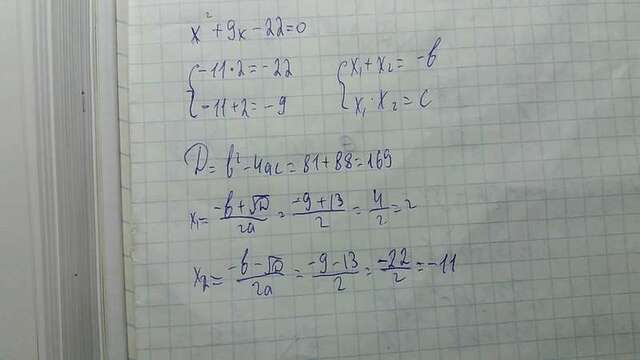 x² + 9x - 22 = 0
{ -11 · 2 = -22
{ -11 + 2 = -9
{ x₁ + x₂ = -b
{ x₁ · x₂ = c
D = b² - 4ac = 81 + 88 = 169
x = (-b + √D)/2a = (-9 + 13)/2 = 4/2 = 2
x₂ = (-b - √D)/2a = (-9 - 13)/2 = -22/2 = -11